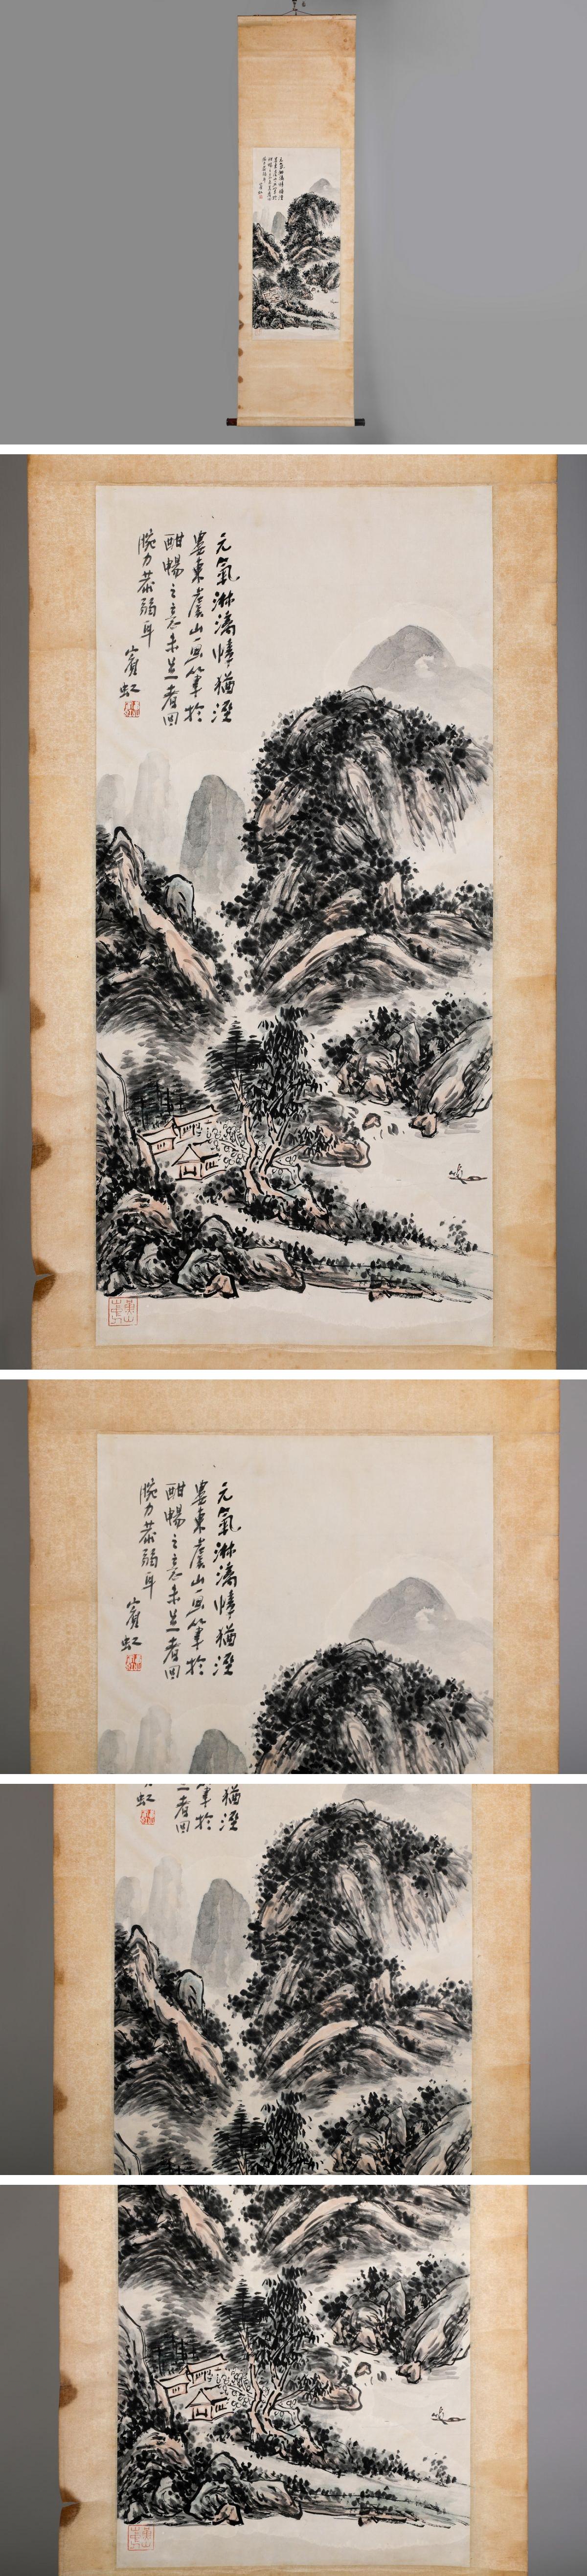 元氣淋漓幛猶溼
婁東虞山筆於
酣暢之意未足者因
腕力荼弱耳
賓虹